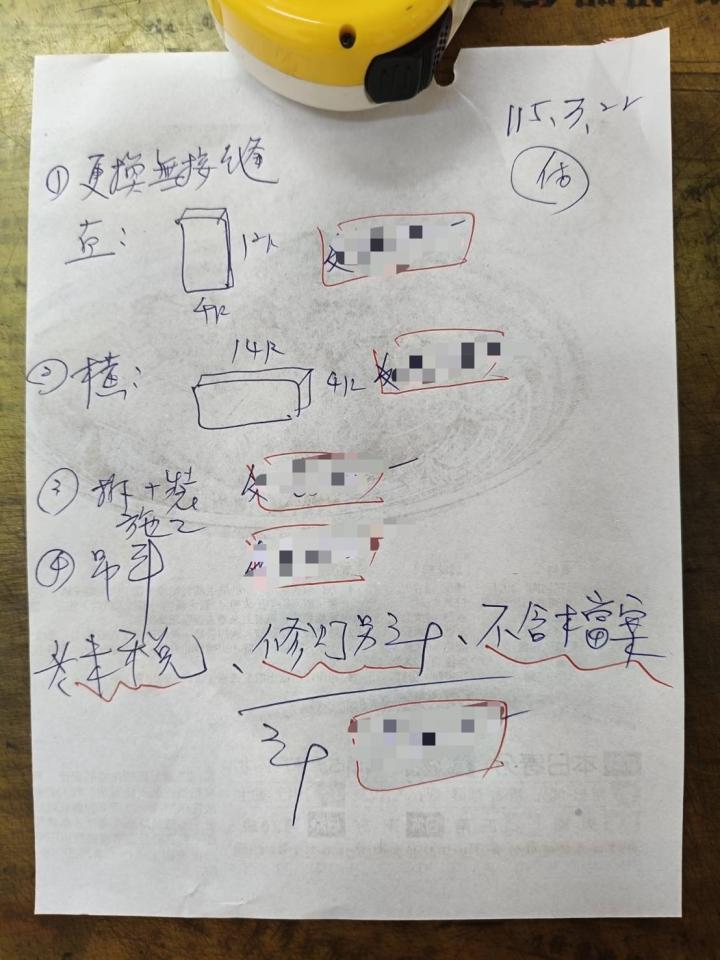 115.3.22
估
① 更換無接縫
直: 12尺
4尺
14尺
② 橫: 4尺
③ 拆+裝
施工
④ 吊車
未稅、修灯另計、不含檔案
計